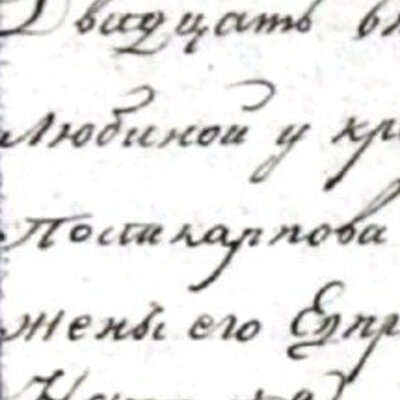 Двидцать
Любиной у кре
Поликарпова
жены его Епр